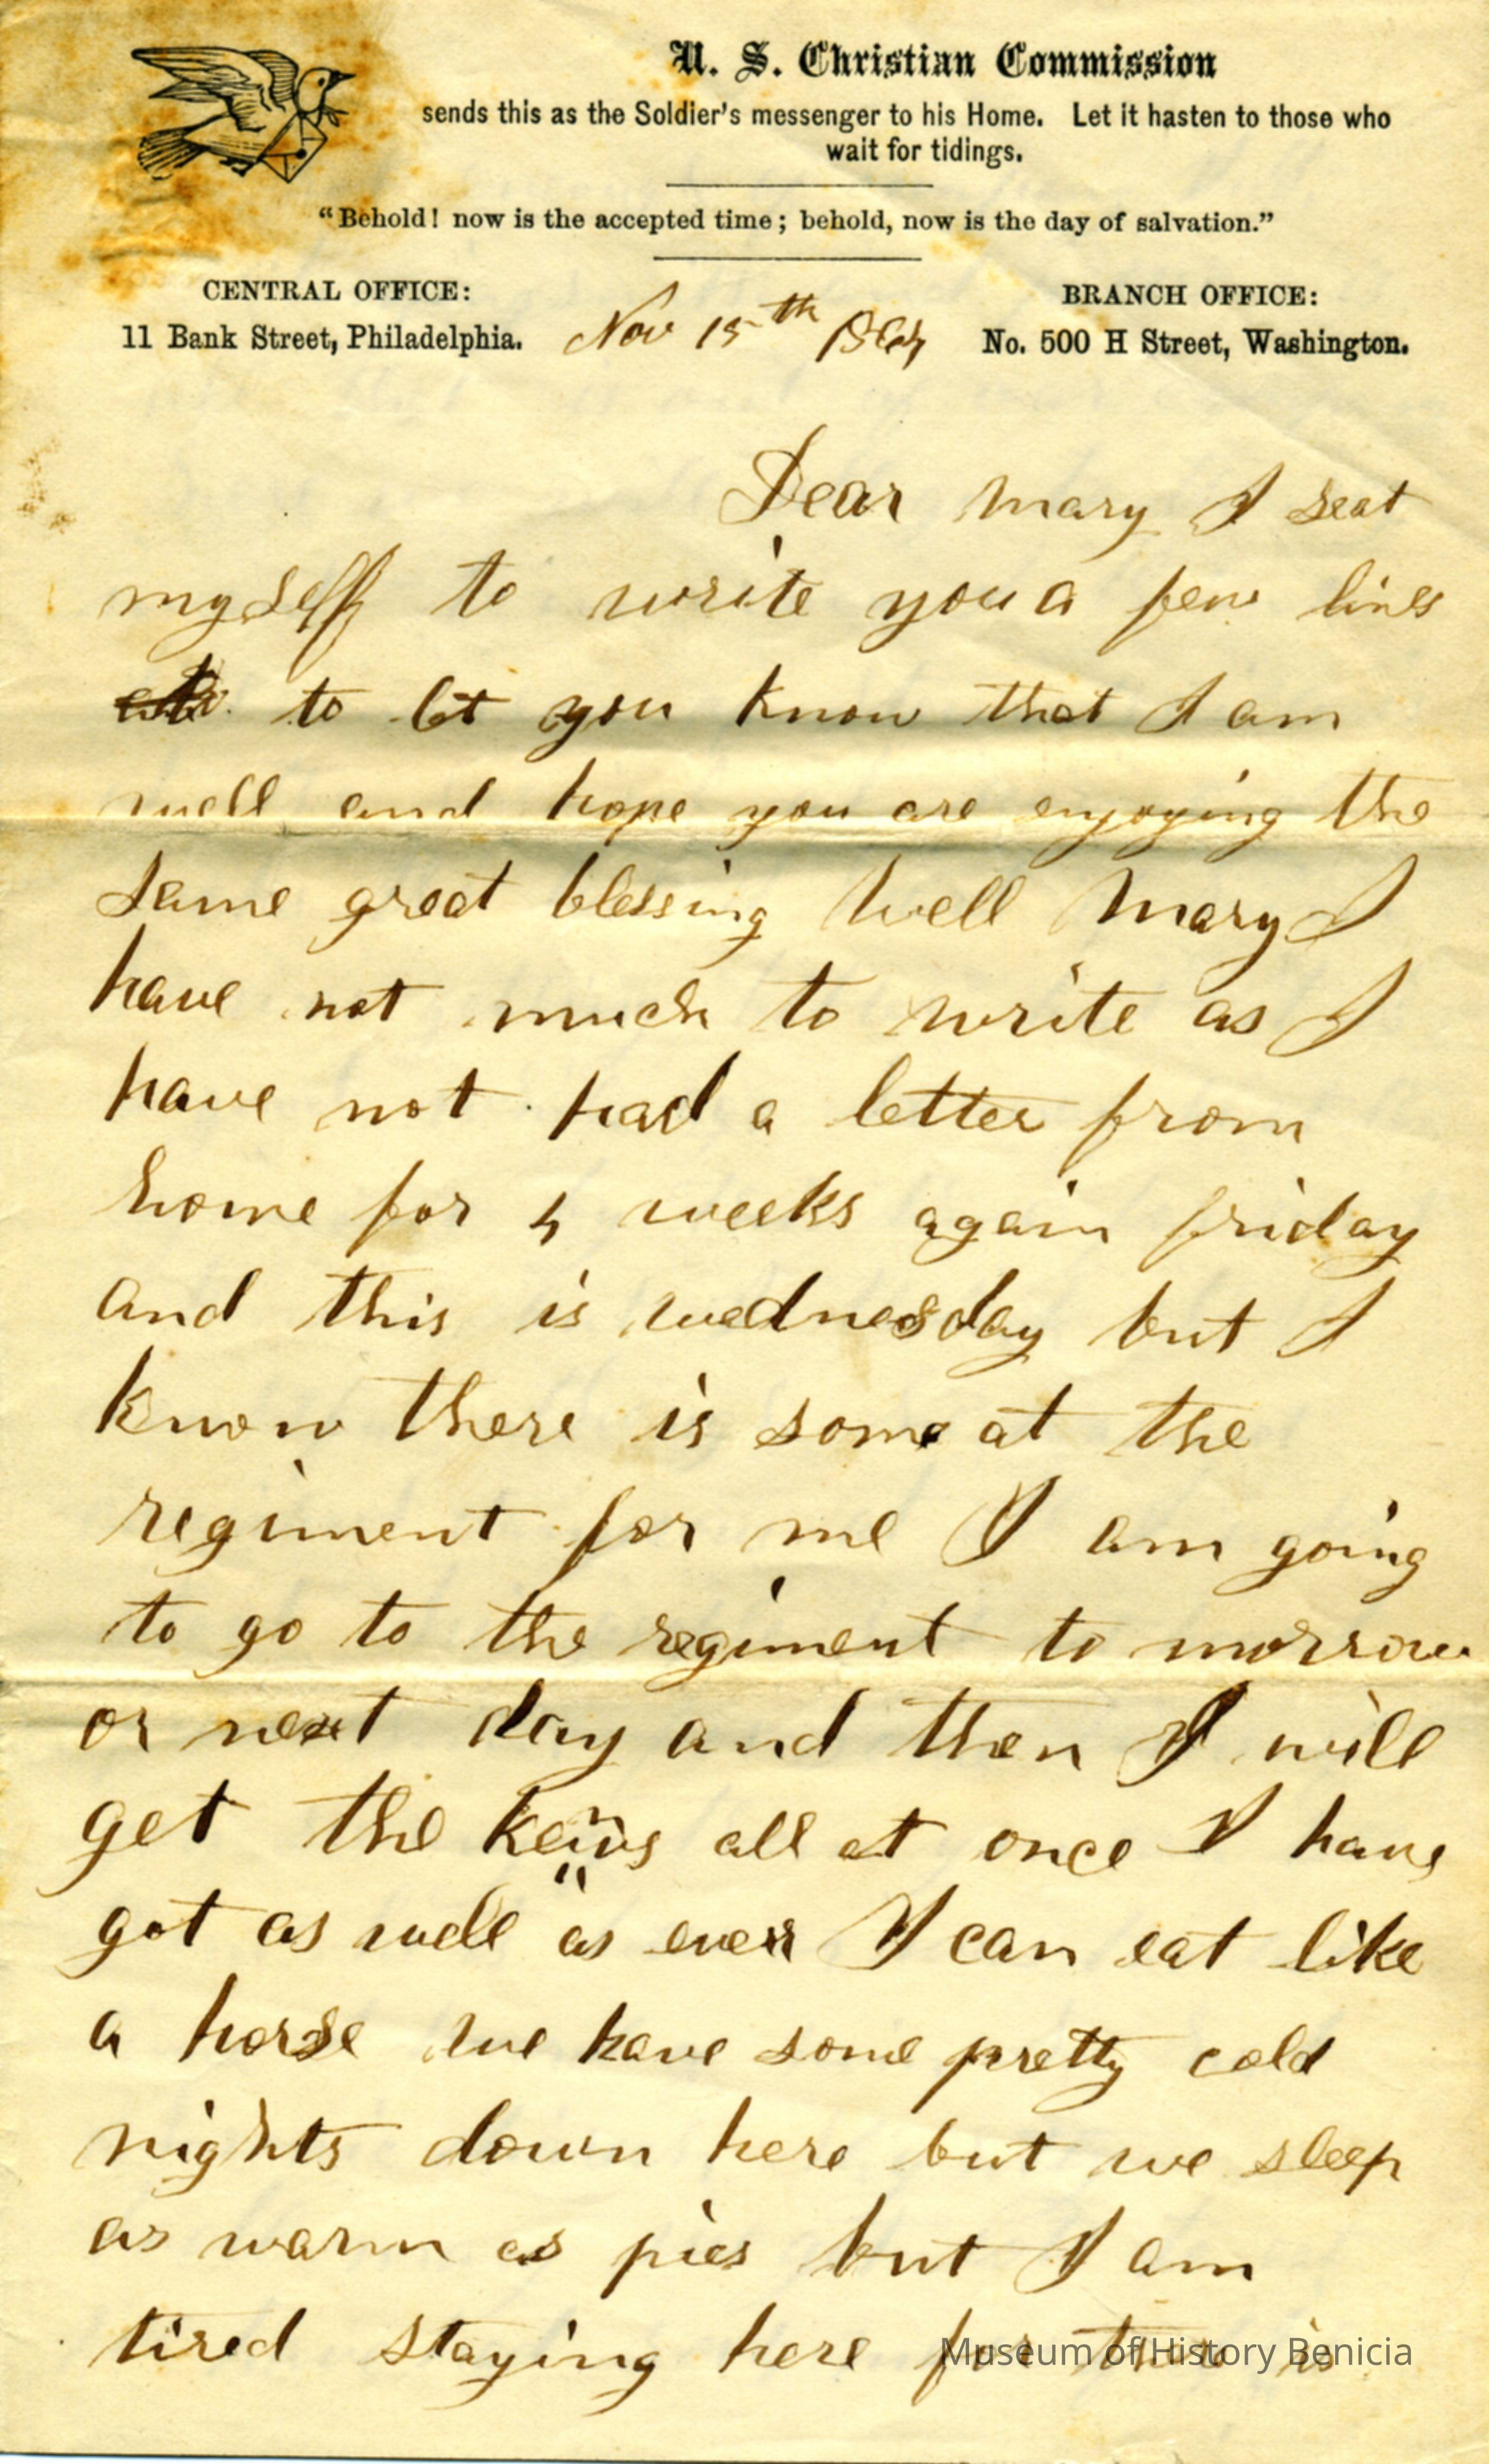 U. S. Christian Commission
sends this as the Soldier's messenger to his Home. Let it hasten to those who
wait for tidings.
"Behold! now is the accepted time; behold, now is the day of salvation."
CENTRAL OFFICE:
11 Bank Street, Philadelphia.
Nov 15th 1864
BRANCH OFFICE:
No. 500 H Street, Washington.
Dear Mary I seat
myself to write you a few lines
to let you know that I am
well and hope you are enjoying the
same great blessing Well Mary I
have not much to write as I
have not had a letter from
home for 4 weeks again friday
and this is wednesday but I
know there is some at the
regiment for me I am going
to go to the regiment to morrow
or next day and then I will
get the all at once I have
got as well as ever I can eat like
a horse We have some pretty cold
nights down here but we sleep
as warm as pies but I am
tired staying here for there is
Museum of History Benicia